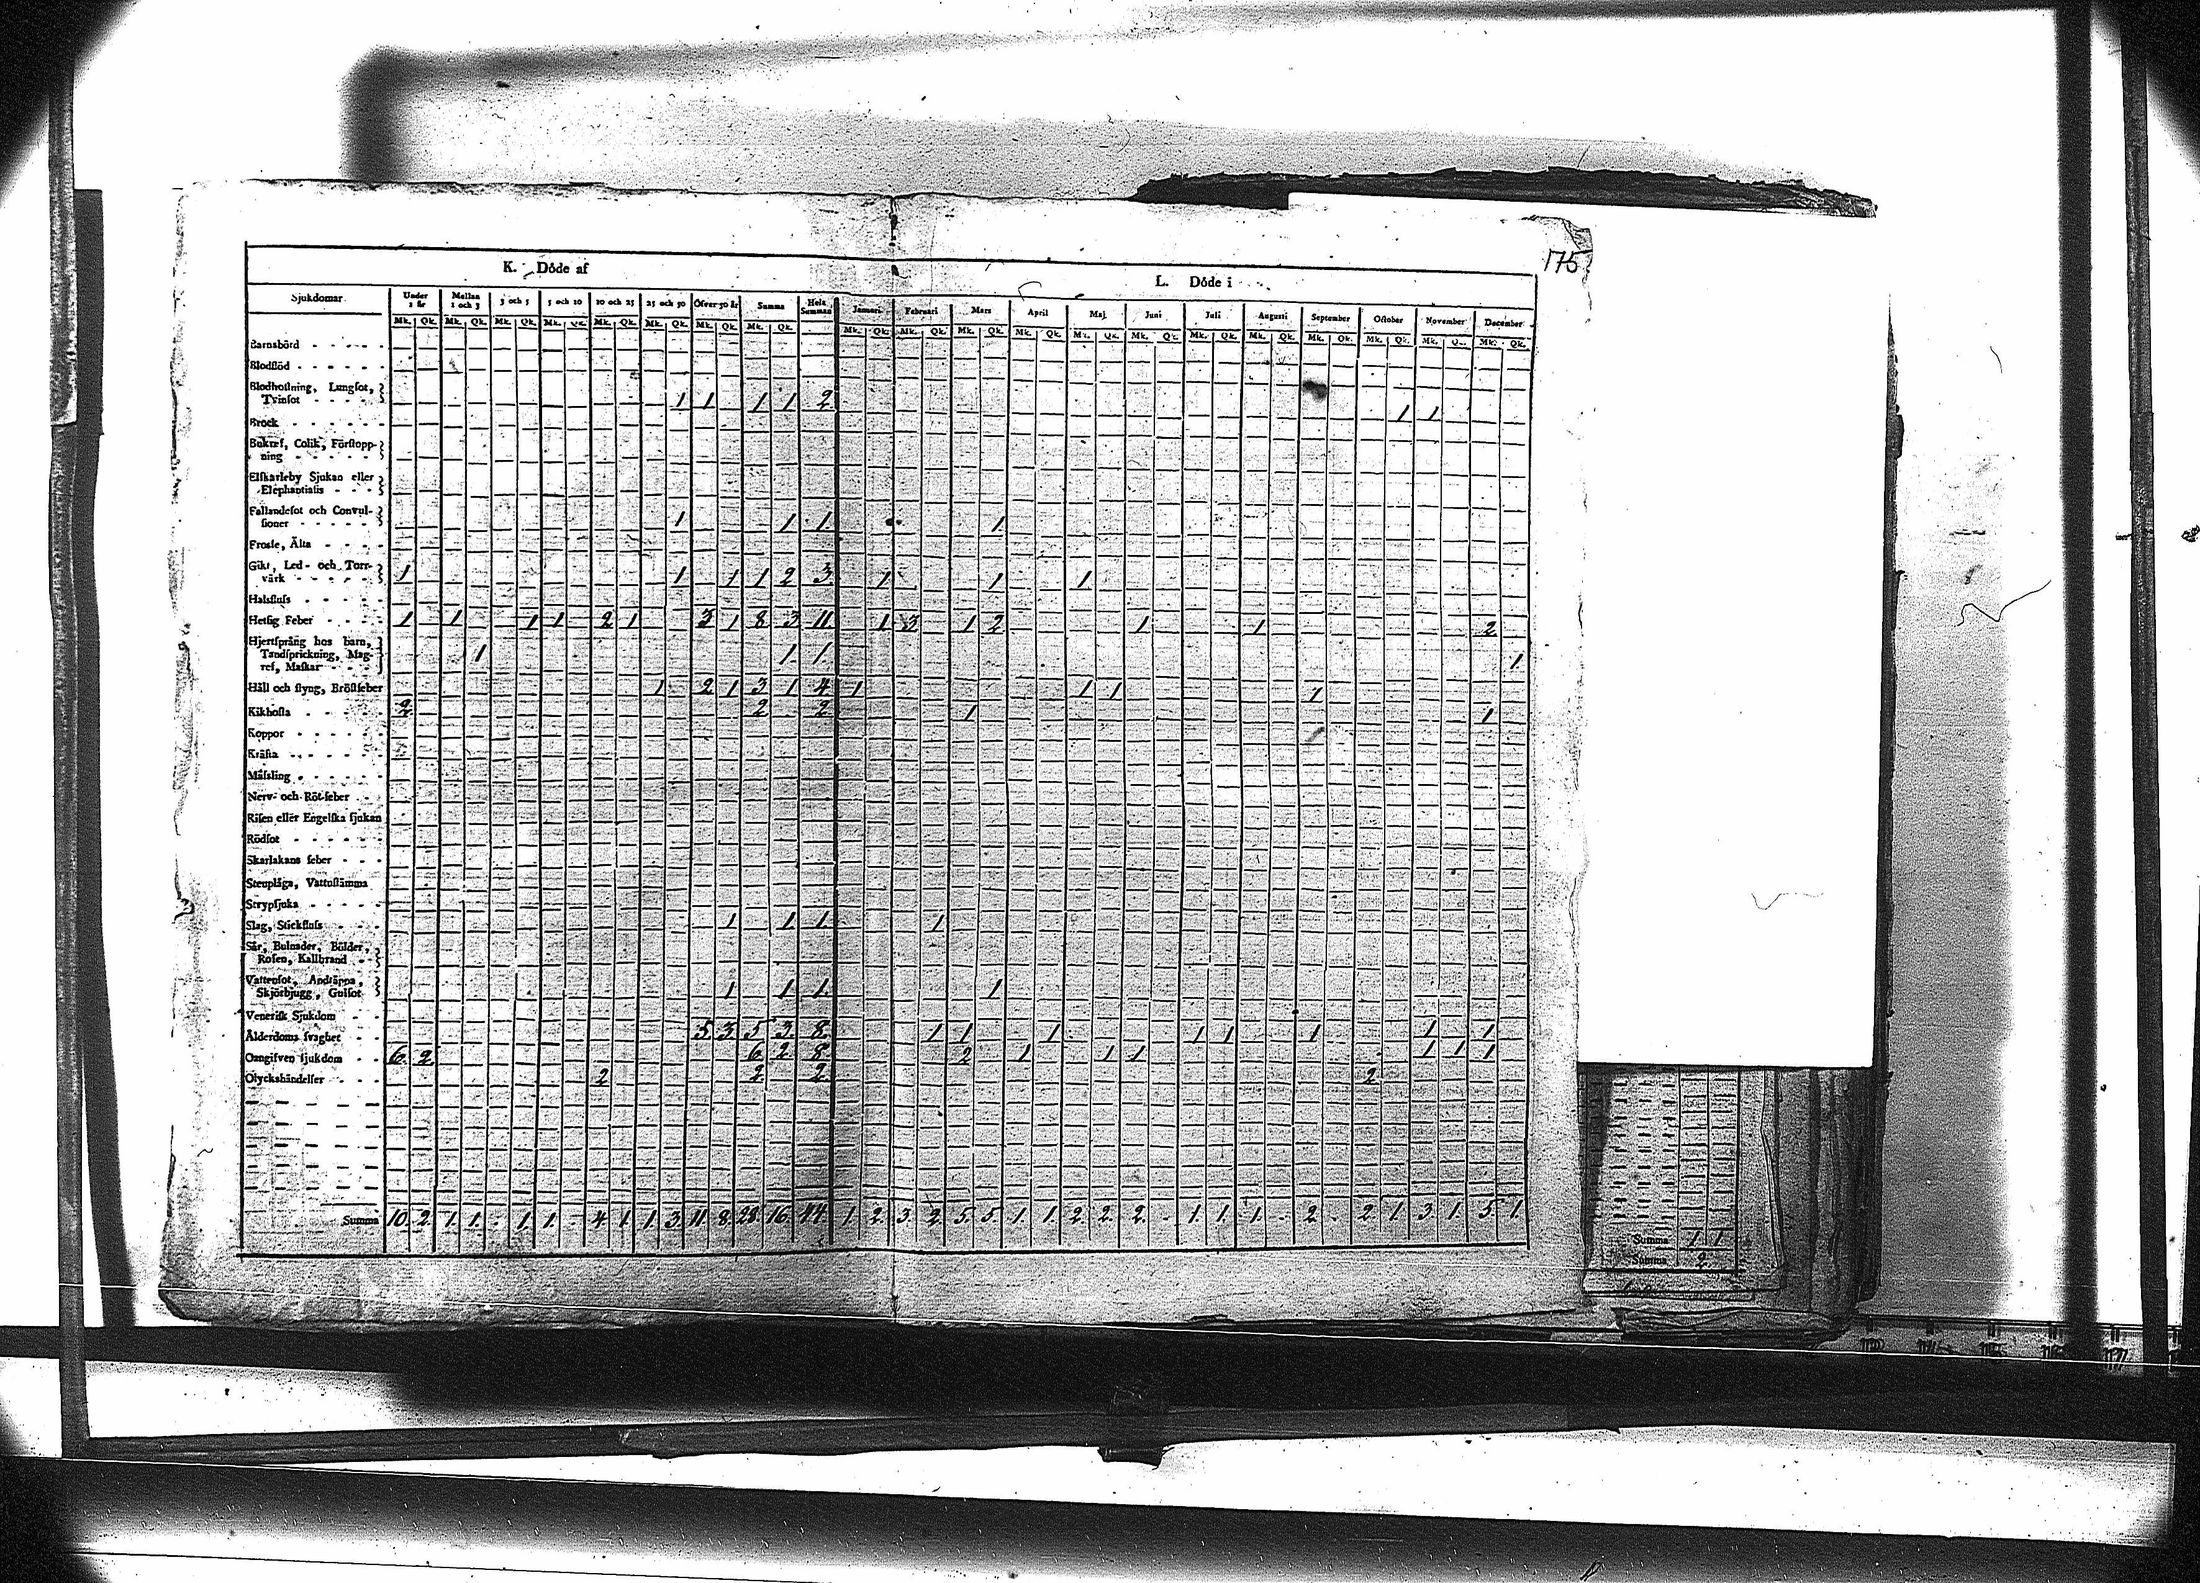 175
K. Döde af L. Döde i
Sjukdomar. Under 1 år Mellan 1 och 3 3 och 5 5 och 10 10 och 25 25 och 50 Öfver 50 år Summa Hela Summan Januari. Februari Mars April Maj. Juni Juli Augusti September October November December
Mk. Qk. Mk. Qk. Mk. Qk. Mk. Qk. Mk. Qk. Mk. Qk. Mk. Qk. Mk. Qk. Mk. Qk. Mk. Qk. Mk. Qk. Mk. Qk. Mk. Qk. Mk. Qk. Mk. Qk. Mk. Qk. Mk. Qk. Mk. Qk. Mk. Qk. Mk. Qk.
Barnsbörd
Blodflöd
Blodhostning, Lungsot,
Tvinsot 1 1 1 1 2 1 1
Brock
Bukref, Colik, Förstopp-
ning
Elfkarleby Sjukan eller
Elephantiasis
Fallandesot och Convul-
sioner 1 1 1. 1.
Frossa, Älta
Gikt, Led- och Torr-
värk 1 1 1 1 2 3 1 1 1
Halsfluss
Hetsig Feber 1 1 1 1 2 1 3 1 8 3 11 1 3 1 2 1 1 2
Hjertsprång hos barn,
Tandsprickning, Mag-
ref, Maskar 1 1. 1. 1.
Håll och styng, Bröstfeber 1 2 1 3 1 4 1 1 1 1
Kikhosta 2 2 2 1 1
Koppor
Kräfta
Mässling
Nerv- och Röt-feber
Risen eller Engelska sjukan
Rödsot
Skarlakans feber
Stenplåga, Vattustämma
Strypsjuka
Slag, Stickfluss 1 1 1. 1
Sår, Bulnader, Bölder,
Rosen, Kallbrand
Vattensot, Andtäppa,
Skjörbjugg, Gulsot 1 1 1. 1
Venerisk Sjukdom
Ålderdoms svaghet 5 3 5 3 8. 1 1 1 1 1 1 1 1
Oangifven sjukdom 6. 2 6 2 8. 2 1 1 1 1 1 1
Olyckshändelser 2 2 2 2
Summa 10. 2. 1. 1. - 1. 1. - 4. 1. 1. 3. 11. 8. 28. 16. 44. 1. 2. 3. 2. 5. 5. 1. 1. 2. 2. 2. - 1. 1. 1. - 2. - 2. 1. 3. 1. 5. 1.
Summa 1 1
Summa 2